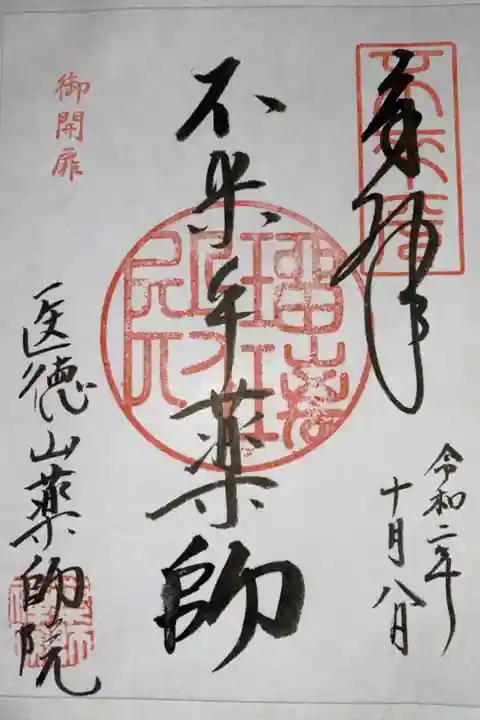 奉拝
令和二年
十月八日
不米牟薬師
御開扉
医徳山薬師院